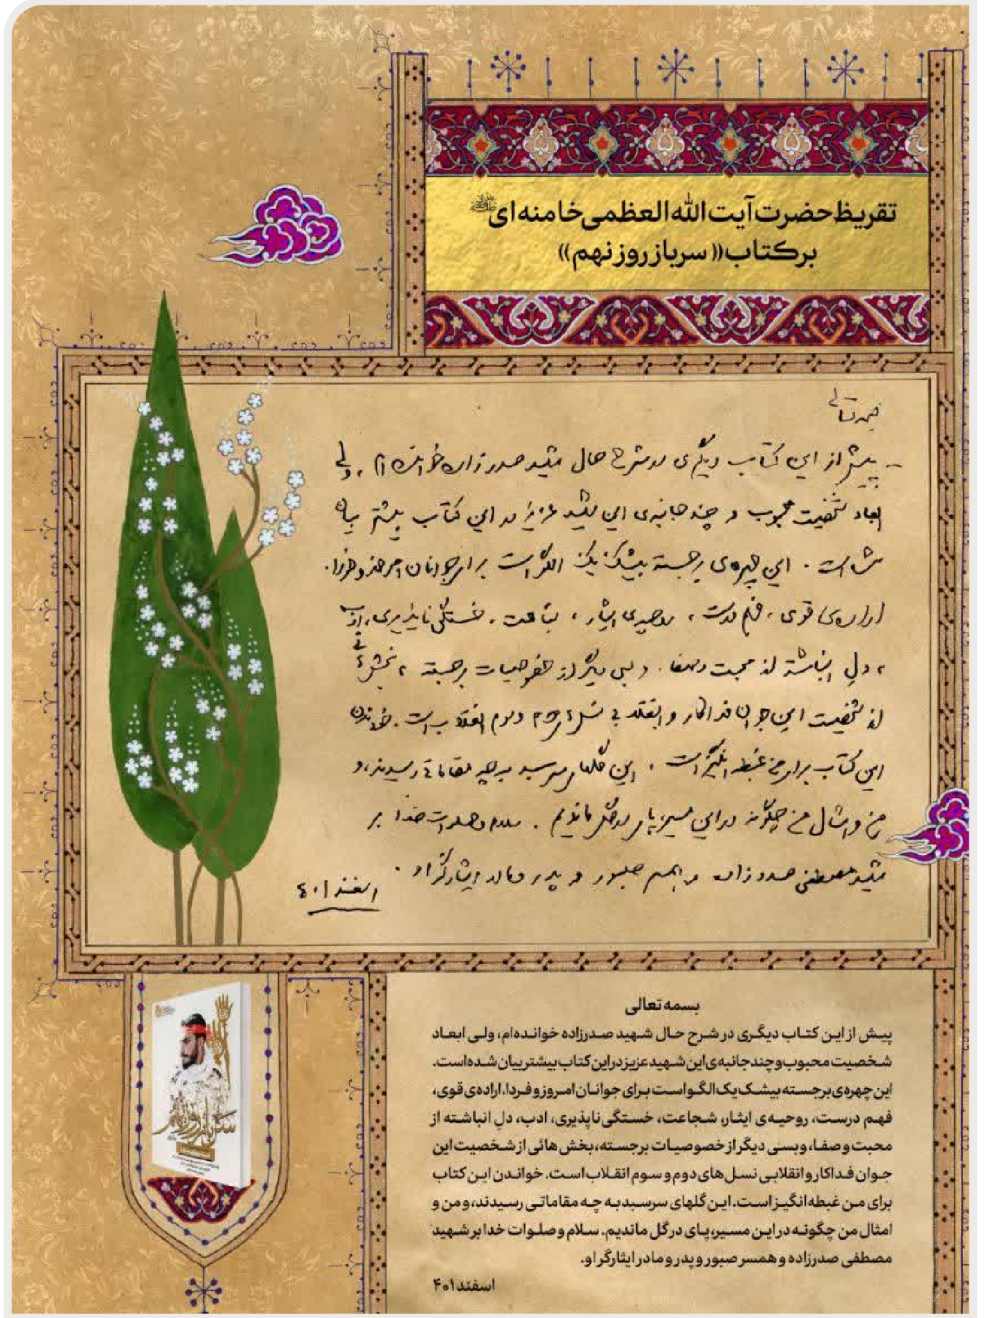 تقریظ حضرت آیت الله العظمی خامنه ای
بر کتاب «سرباز روز نهم»
بسمه تعالی
- پیش از این کتاب دیگری در شرح حال شهید صدرزاده خوانده‌ام، ولی
ابعاد شخصیت محبوب و چند جانبه‌ی این شهید عزیز در این کتاب بیشتر بیان
شده است. این چهره‌ی برجسته بیشک یک الگو است برای جوانان امروز و فردا.
اراده‌ی قوی، فهم درست، روحیه‌ی ایثار، شجاعت، خستگی ناپذیری، ادب
، دل انباشته از محبت و صفا، و بسی دیگر از خصوصیات برجسته، بخش‌هائی
از شخصیت این جوان فداکار و انقلابی نسل‌های دوم و سوم انقلاب است. خواندن
این کتاب برای من غبطه انگیز است. این گلهای سرسبد به چه مقاماتی رسیدند، و
من و امثال من چگونه در این مسیر، پای در گل ماندیم. سلام و صلوات خدا بر
شهید مصطفی صدرزاده و همسر صبور و پدر و مادر ایثارگر او.
اسفند ۴۰۱
بسمه تعالی
پیش از این کتاب دیگری در شرح حال شهید صدرزاده خوانده‌ام، ولی ابعاد
شخصیت محبوب و چند جانبه‌ی این شهید عزیز در این کتاب بیشتر بیان شده است.
این چهره‌ی برجسته بیشک یک الگو است برای جوانان امروز و فردا. اراده‌ی قوی،
فهم درست، روحیه‌ی ایثار، شجاعت، خستگی ناپذیری، ادب، دلِ انباشته از
محبت و صفا، و بسی دیگر از خصوصیات برجسته، بخش هائی از شخصیت این
جوان فداکار و انقلابی نسل های دوم و سوم انقلاب است. خواندن این کتاب
برای من غبطه‌انگیز است. این گلهای سرسبد به چه مقاماتی رسیدند، و من و
امثال من چگونه در این مسیر، پای در گل ماندیم. سلام و صلوات خدا بر شهید
مصطفی صدرزاده و همسر صبور و پدر و مادر ایثارگر او.
اسفند ۴۰۱
سرباز روز نهم